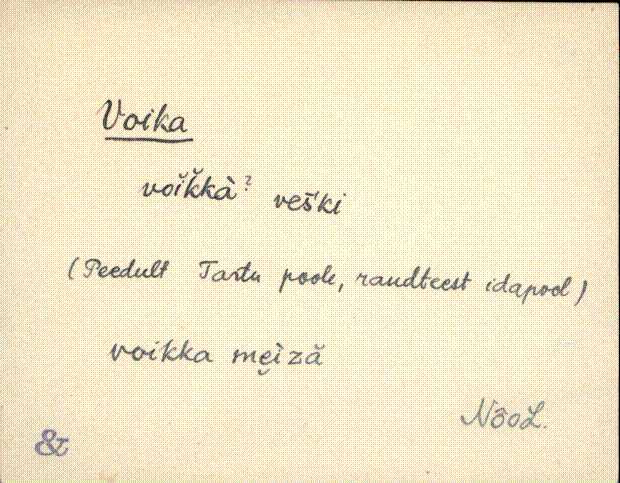 Voika
voĭk̆kà? veški
(Peedult Tartu poole, raudteest idapool)
voikka mei̯ză
NõoL.
&